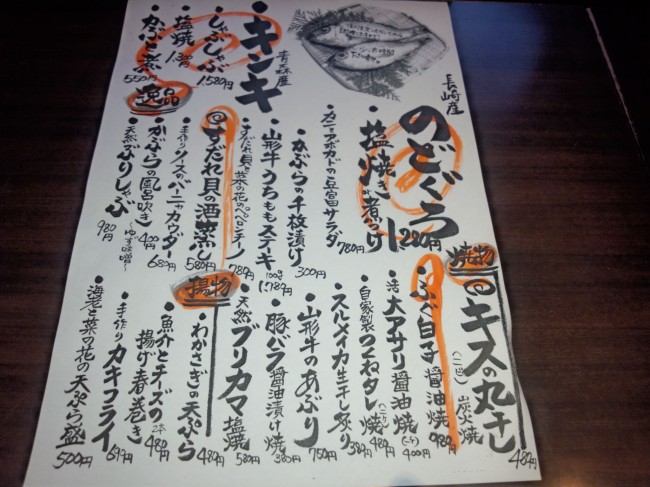 長崎産
のどぐろ
塩焼き・煮つけ
1280円
青森産
・キンキ
・しゃぶしゃぶ 1,580円
・塩焼 1,380円
・かぶと煮 550円
逸品
カニとアボカドの豆富サラダ 780円
・かぶらの千枚漬け 300円
・山形牛うちももステーキ 100g 1,780円
すだれ貝と菜の花のペペロンチーノ 780円
すだれ貝の酒蒸し 580円
・手作りソースのバーニャカウダー 680円
・かぶらの風呂吹き 〜ゆず味噌〜 400円
・天然ぶりしゃぶ 980円
焼物
キスの丸干し 480円
(二匹) 炭火焼
・ふぐ白子 醤油焼 980円
・活 大アサリ 醤油焼 (一ケ) 400円
・自家製つくねタレ焼 480円
・スルメイカ生干し炙り 380円
・山形牛のあぶり 750円
・豚バラ醤油漬け焼 380円
・天然ブリカマ塩焼 580円
揚物
・わかさぎの天ぷら 480円
・魚介とチーズの揚げ春巻き 2本 480円
・手作りカキフライ
・海老と菜の花の天ぷら盛 500円